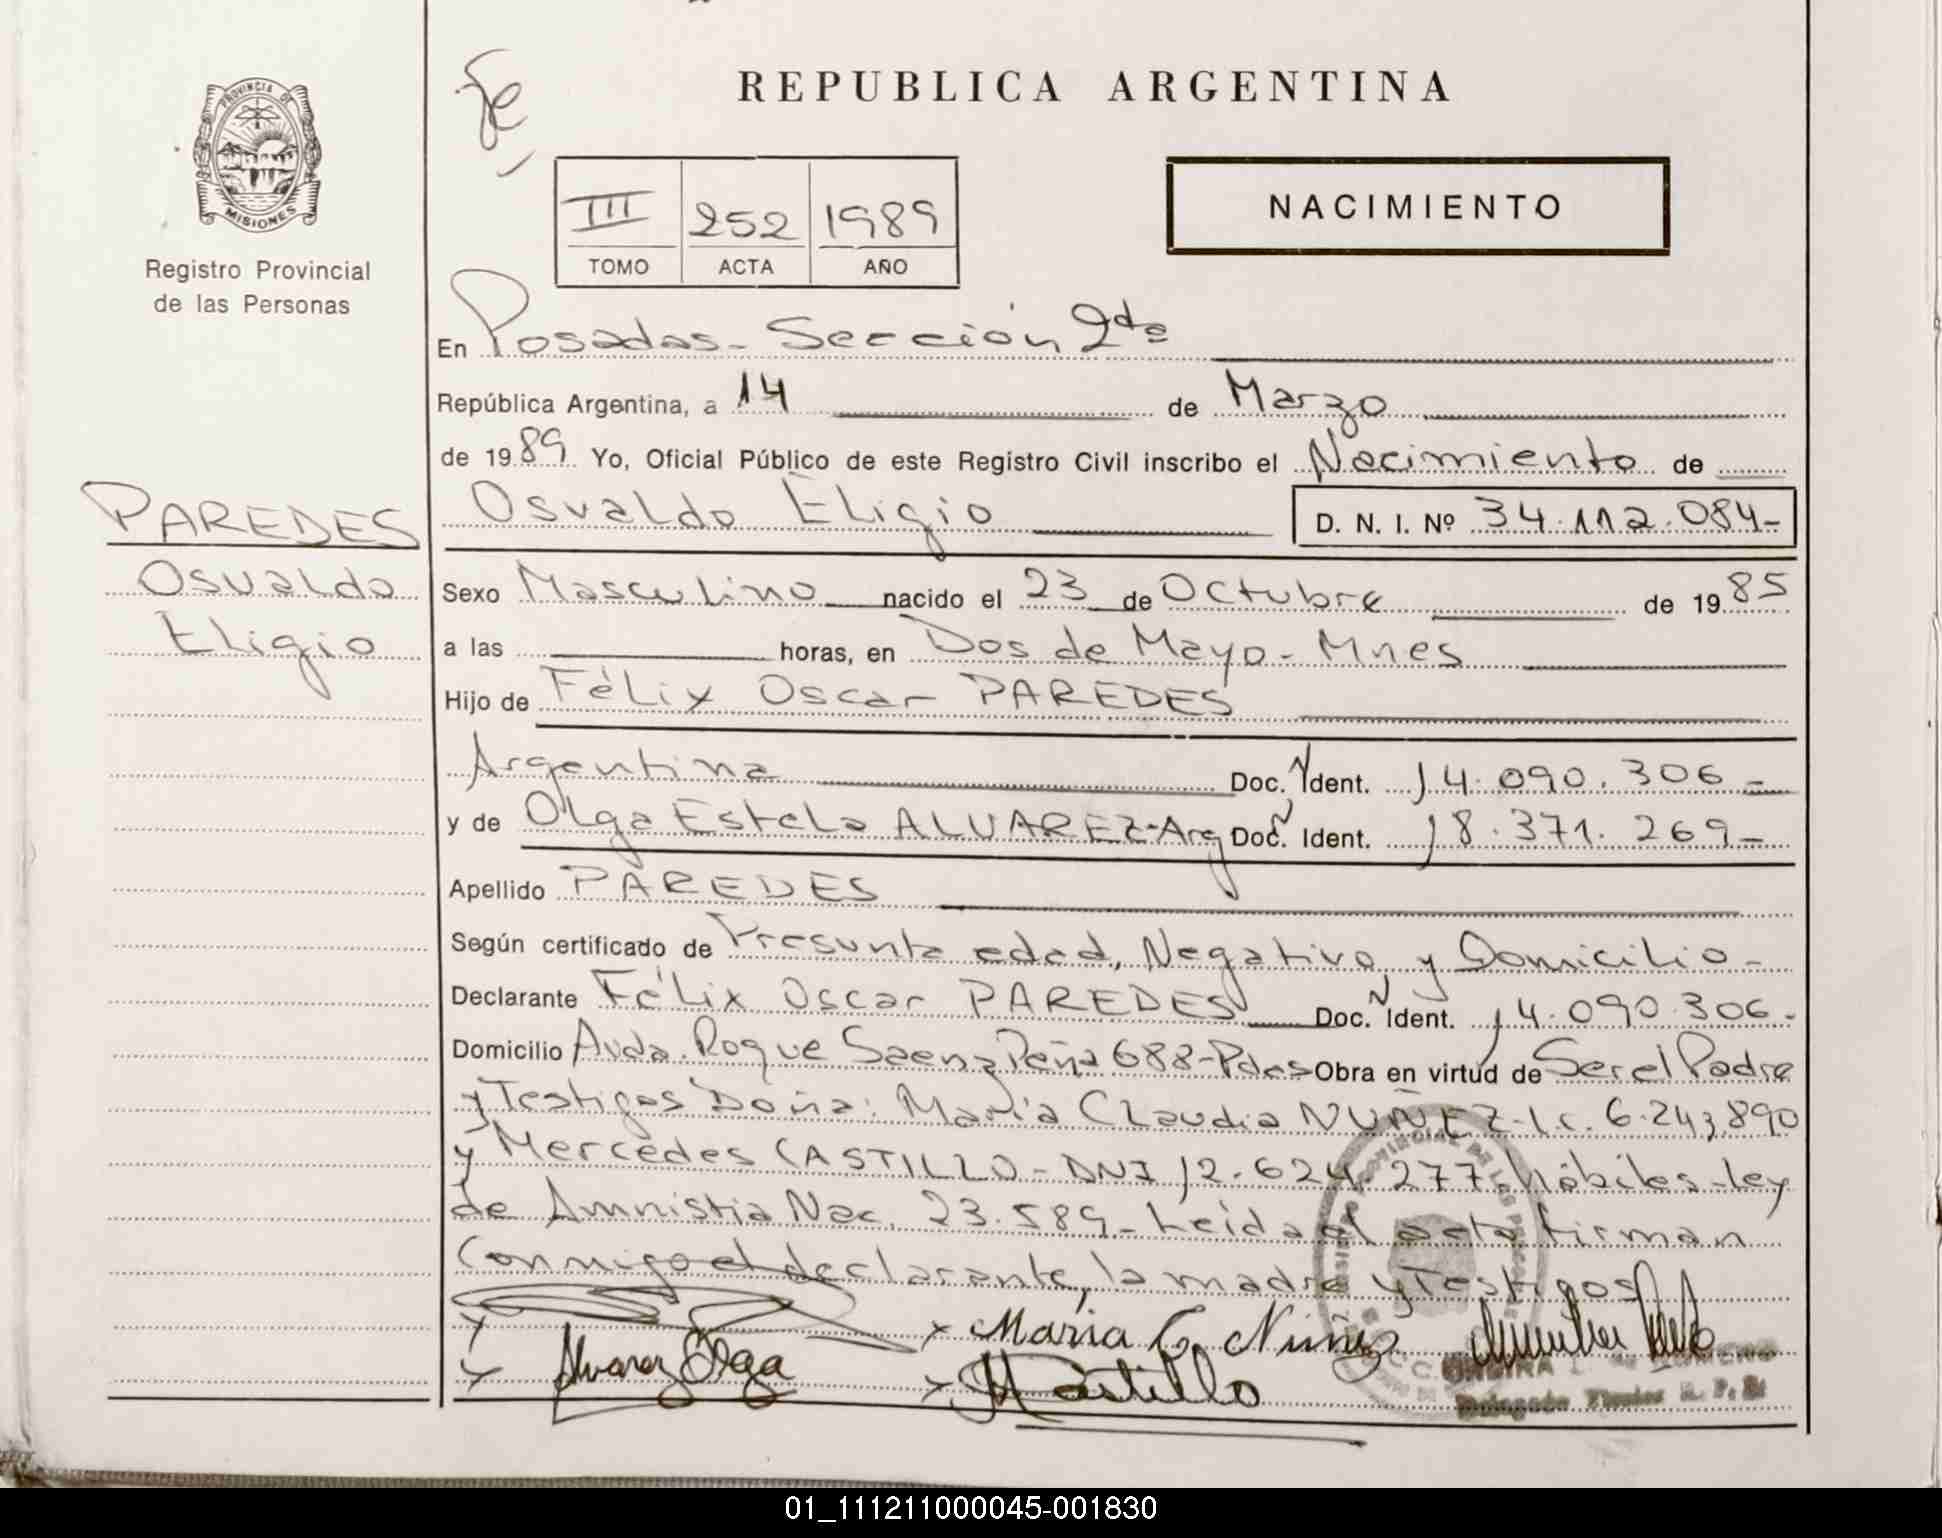 PROVINCIA DE
MISIONES
Registro Provincial
de las Personas
REPUBLICA ARGENTINA
III 252 1989
TOMO ACTA AÑO
NACIMIENTO
En Posadas - Sección 2da
República Argentina, a 14 de Marzo
de 1989 Yo, Oficial Público de este Registro Civil inscribo el Nacimiento de
PAREDES
Osvaldo
Eligio
Osvaldo Eligio D. N. I. Nº 34.112.084-
Sexo Masculino nacido el 23 de Octubre de 1985
a las horas, en Dos de Mayo - Mnes
Hijo de Félix Oscar PAREDES
Argentina Doc. Ident. 14.090.306
y de Olga Estela ALVAREZ-Arg Doc. Ident. 18.371.269-
Apellido PAREDES
Según certificado de Presunta edad, Negativo y Domicilio-
Declarante Félix Oscar PAREDES Doc. Ident. 14.090.306-
Domicilio Avda. Roque Saenz Peña 688-Pdas Obra en virtud de Ser el Padre
y Testigos Doña: María Claudia NUÑEZ-L.C. 6.243,890
y Mercedes CASTILLO-DNI 12.624.277. Hábiles-ley
de Amnistia Nac. 23.589- Leída el acta firman
Conmigo el declarante, la madre y Testigos
x María C. Nuñez
Alvarez Olga x M Castillo
01_111211000045-001830